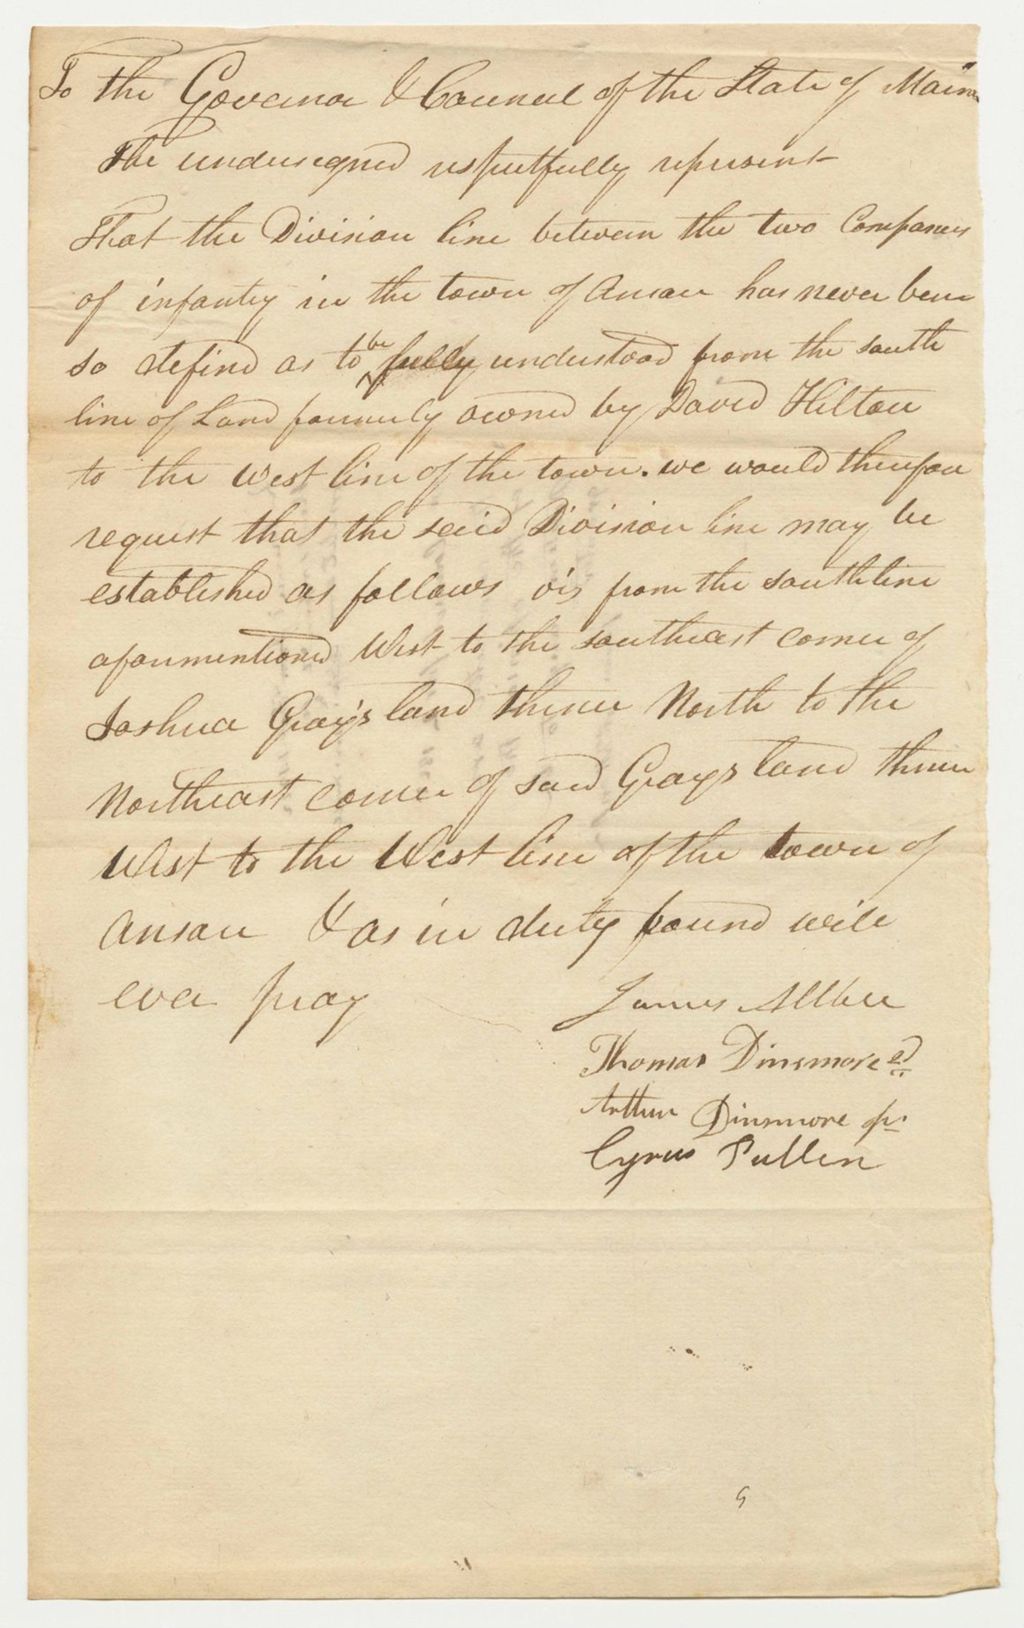 To the Governor & Council of the State of Maine
The undersigned respectfully represent
That the Division line between the two Companies
of infantry in the town of Anson has never been
so defined as to be fully understood from the south
line of Land formerly owned by David Hilton
to the West line of the town. we would therefore
request that the said Division line may be
established as follows viz from the south line
aforementioned West to the southeast corner of
Joshua Gray's land thence North to the
Northeast corner of said Grays land thence
West to the West line of the town of
Anson & as in duty bound will
ever pray
James
Thomas Dinsmore 2d
Arthur Dinsmore jr
Cyrus Pullen